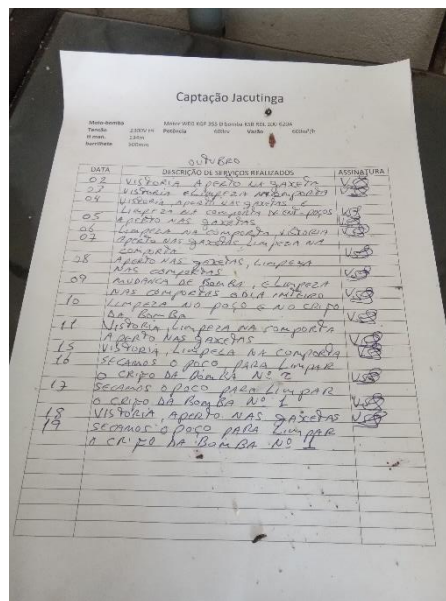 Captação Jacutinga
Moto-bomba Motor WEG HGF 355 B bomba KSB
Tensão 2300V Potência 600cv Vazão 600m³/h
H man. 134m
barrilhete 500mm
OUTUBRO
DATA DESCRIÇÃO DE SERVIÇOS REALIZADOS ASSINATURA
02 VISTORIA APERTO NA GAXETA
03 VISTORIA E LIMPEZA NA COMPORTA
04 VISTORIA APERTO NAS GAXETAS E
LIMPEZA NA COMPORTA POÇOS
05 APERTO NAS GAXETAS
06 LIMPEZA NA COMPORTA, VISTORIA
07 APERTO NAS GAXETAS, LIMPEZA NA
COMPORTA
08 APERTO NAS GAXETAS, LIMPEZA
NAS COMPORTAS
09 MUDANCA DE BOMBA, E LIMPEZA
NAS COMPORTAS O DIA INTEIRO
10 LIMPEZA NO POÇO E NO CRIFO
DA BOMBA
11 VISTORIA, LIMPEZA NA COMPORTA
APERTO NAS GAXETAS
15 VISTORIA, LIMPEZA NA COMPORTA
16 SECAMOS O POCO PARA LIMPAR
O CRIFO DA BOMBA Nº 2
17 SECAMOS O POCO PARA LIMPAR
O CRIFO DA BOMBA Nº 1
18 VISTORIA, APERTO NAS GAXETAS
19 SECAMOS O POCO PARA LIMPAR
O CRIFO DA BOMBA Nº 1